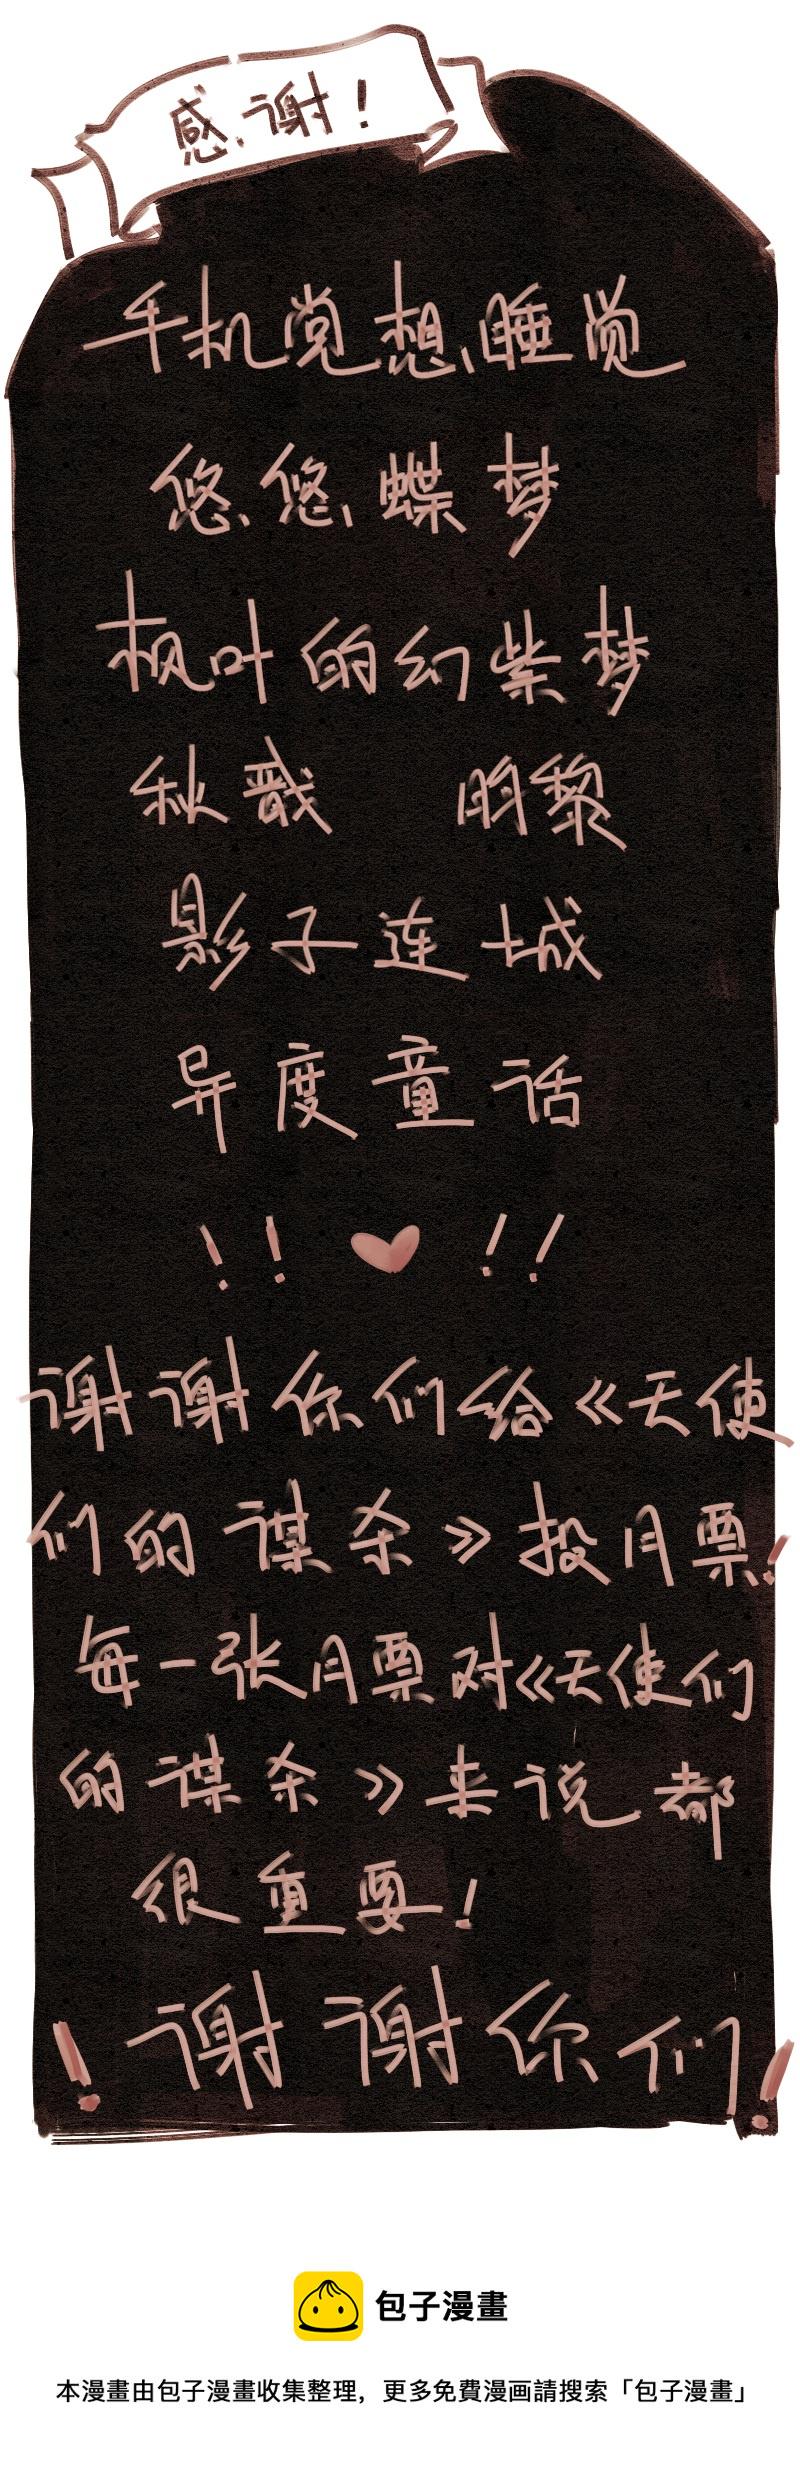 感谢！
手机党想睡觉
悠悠蝶梦
枫叶的幻紫梦
秋戬 胕黎
影子连城
异度童话
！！ ！！
谢谢你们给《天使
们的谋杀》投月票！
每一张月票对《天使们
的谋杀》来说都
很重要！
！谢谢你们！
包子漫畫
本漫畫由包子漫畫收集整理，更多免費漫画請搜索「包子漫畫」